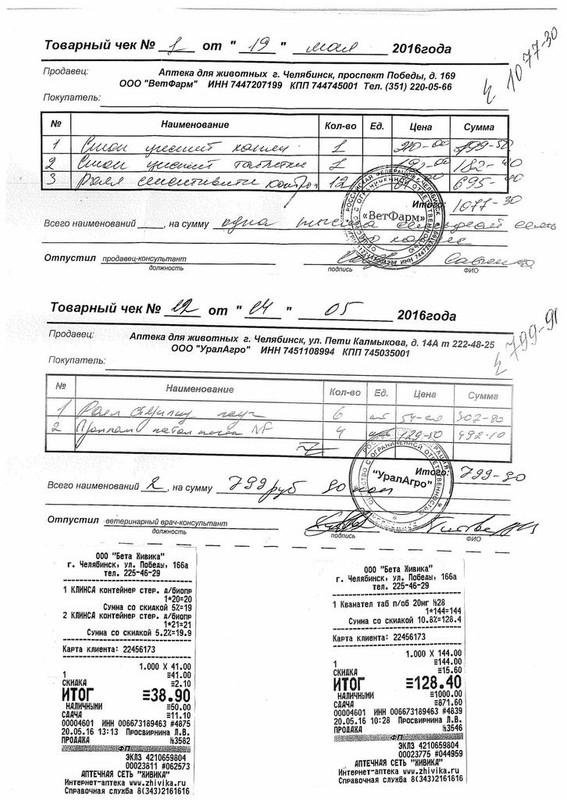 Товарный чек № 1 от " 19 " мая 2016года
£ 1077-90
Продавец: Аптека для животных г. Челябинск, проспект Победы, д. 169
ООО "ВетФарм" ИНН 7447207199 КПП 744745001 Тел. (351) 220-05-66
Покупатель:
№ Наименование Кол-во Ед. Цена Сумма
1 Стоп 1
2 Стоп таблетки 1 182-
3 Роял сенситивити 12 695-
Итого: 1077-90
Всего наименований , на сумму одна
«ВетФарм»
Отпустил продавец-консультант
должность подпись ФИО
Товарный чек № 22 от " 24 " 05 2016года
£ 799-9
Продавец: Аптека для животных г. Челябинск, ул. Пети Калмыкова, д. 14А т 222-48-25
ООО "УралАгро" ИНН 7451108994 КПП 745035001
Покупатель:
№ Наименование Кол-во Ед. Цена Сумма
1 Роял 6 шт
2 4
Итого: 799-90
"УралАгро"
Всего наименований 2 , на сумму 799 руб 90 коп
Отпустил ветеринарный врач-консультант
должность подпись ФИО
ООО "Бета Живика"
г. Челябинск, ул. Победы, 166а
тел. 225-46-29
1 КЛИНСА контейнер стер. д/биопр
1*20=20
Сумма со скидкой 5%=19
2 КЛИНСА контейнер стер. д/биопр
1*21=21
Сумма со скидкой 5.2%=19.9
Карта клиента: 22456173
1.000 X 41.00
1 ≡41.00
СКИДКА ≡2.10
ИТОГ ≡38.90
НАЛИЧНЫМИ ≡50.00
СДАЧА ≡11.10
00004601 ИНН 006673189463 #4875
20.05.16 13:13 Просвирнина Л.В.
ПРОДАЖА №3582
ФП
ЭКЛЗ 4210659804
00023811 #062573
АПТЕЧНАЯ СЕТЬ "ЖИВИКА"
Интернет-аптека www.zhivika.ru
Справочная служба 8(343)2161616
ООО "Бета Живика"
г. Челябинск, ул. Победы, 166а
тел. 225-46-29
1 Кванател таб п/об 20мг №28
1*144=144
Сумма со скидкой 10.8%=128.4
Карта клиента: 22456173
1.000 X 144.00
1 ≡144.00
СКИДКА ≡15.60
ИТОГ ≡128.40
НАЛИЧНЫМИ ≡1000.00
СДАЧА ≡871.60
00004601 ИНН 006673189463 #4839
20.05.16 10:28 Просвирнина Л.В.
ПРОДАЖА №3546
ФП
ЭКЛЗ 4210659804
00023775 #044959
АПТЕЧНАЯ СЕТЬ "ЖИВИКА"
Интернет-аптека www.zhivika.ru
Справочная служба 8(343)2161616